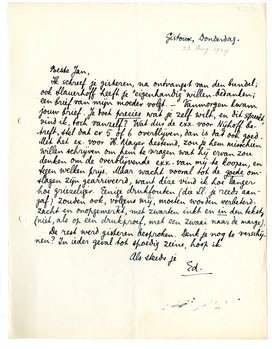 Gistoux, Donderdag.
22 Aug. 1929
Beste Jan,
Ik schreef je gisteren, na ontvangst van den bundel;
ook Slauerhoff heeft je eigenhandig willen bedanken;
een brief van mijn moeder volgt. — Vanmorgen kwam
jouw brief. Je doet precies wat je zelf wilt, en dit spreekt,
vind ik, toch vanzelf? Wat dus de exx. voor Nijhoff be-
treft, stel dat er 5 of 6 overblijven, dan is dat ook goed.
Mét het ex. voor H. Mayer bestemd, zou je hem misschien
willen schrijven om hem te vragen wat hij ervan zou
denken om de overblijvende exx. van mij te koopen, en
tegen welken prijs. Maar wacht vooral tot de goede om-
slagen zijn gearriveerd, want deze vind ik hoe langer
hoe griezeliger. Eenige drukfouten (die Sl. je reeds aan-
gaf) zouden ook, volgens mij, moeten worden verbeterd:
zacht en onopgemerkt, met zwarten inkt en in den tekst
(niet, als op een drukproef, met een zwaai naar de marge).
De rest werd gisteren besproken. Denk je nog te verschij-
nen? In ieder geval tot spoedig ziens, hoop ik.
Als steeds je
Ed.